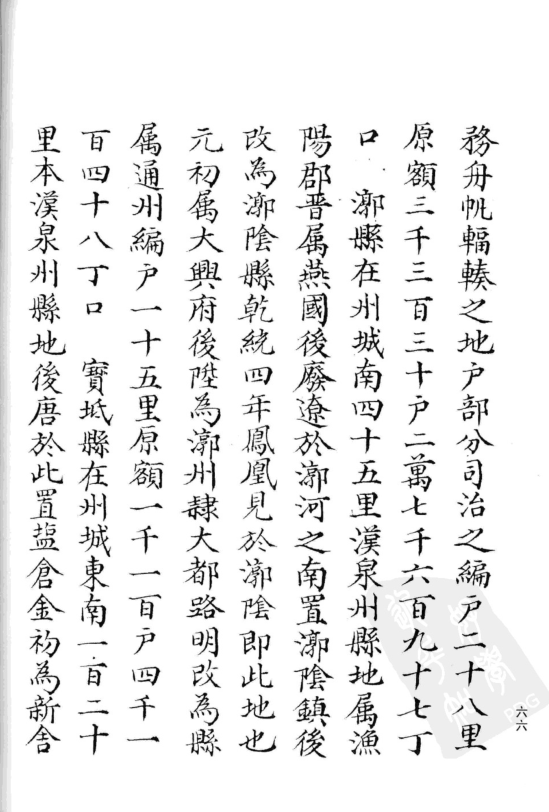 務舟帆輻輳之地户部分司治之編户二十八里
原額三千三百三十户二萬七千六百九十七丁
口　漷縣在州城南四十五里漢泉州縣地属漁
陽郡晋属燕國後廢遼於漷河之南置漷陰鎮後
改為漷陰縣乾統四年鳳凰見於漷陰即此地也
元初属大興府後陞為漷州隷大都路明改為縣
属通州編户一十五里原額一千一百户四千一
百四十八丁口　寶坻縣在州城東南一百二十
里本漢泉州縣地後唐於此置塩倉金初為新舍
六六